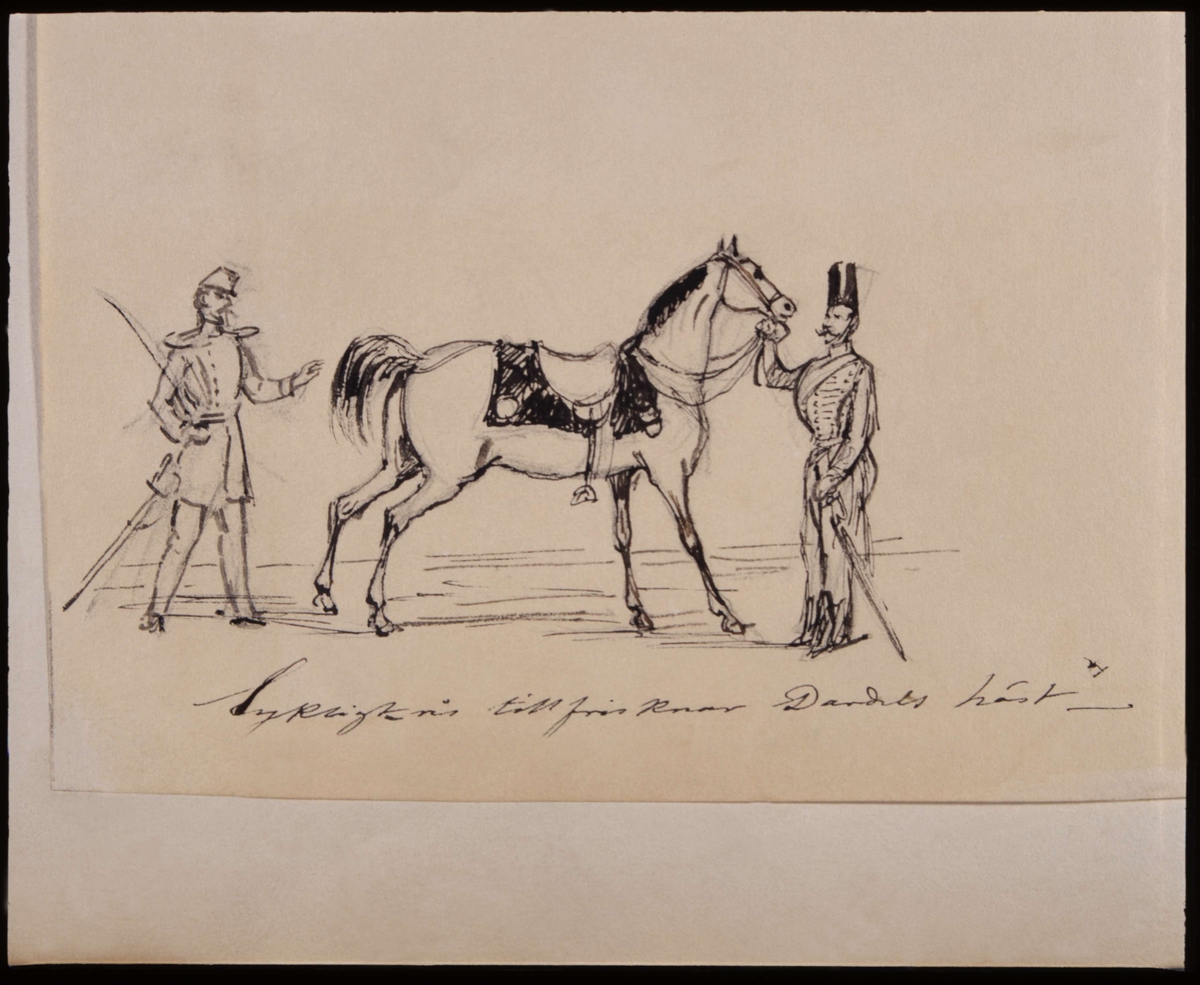 Lyckligtvis tillfrisknar Dardels häst